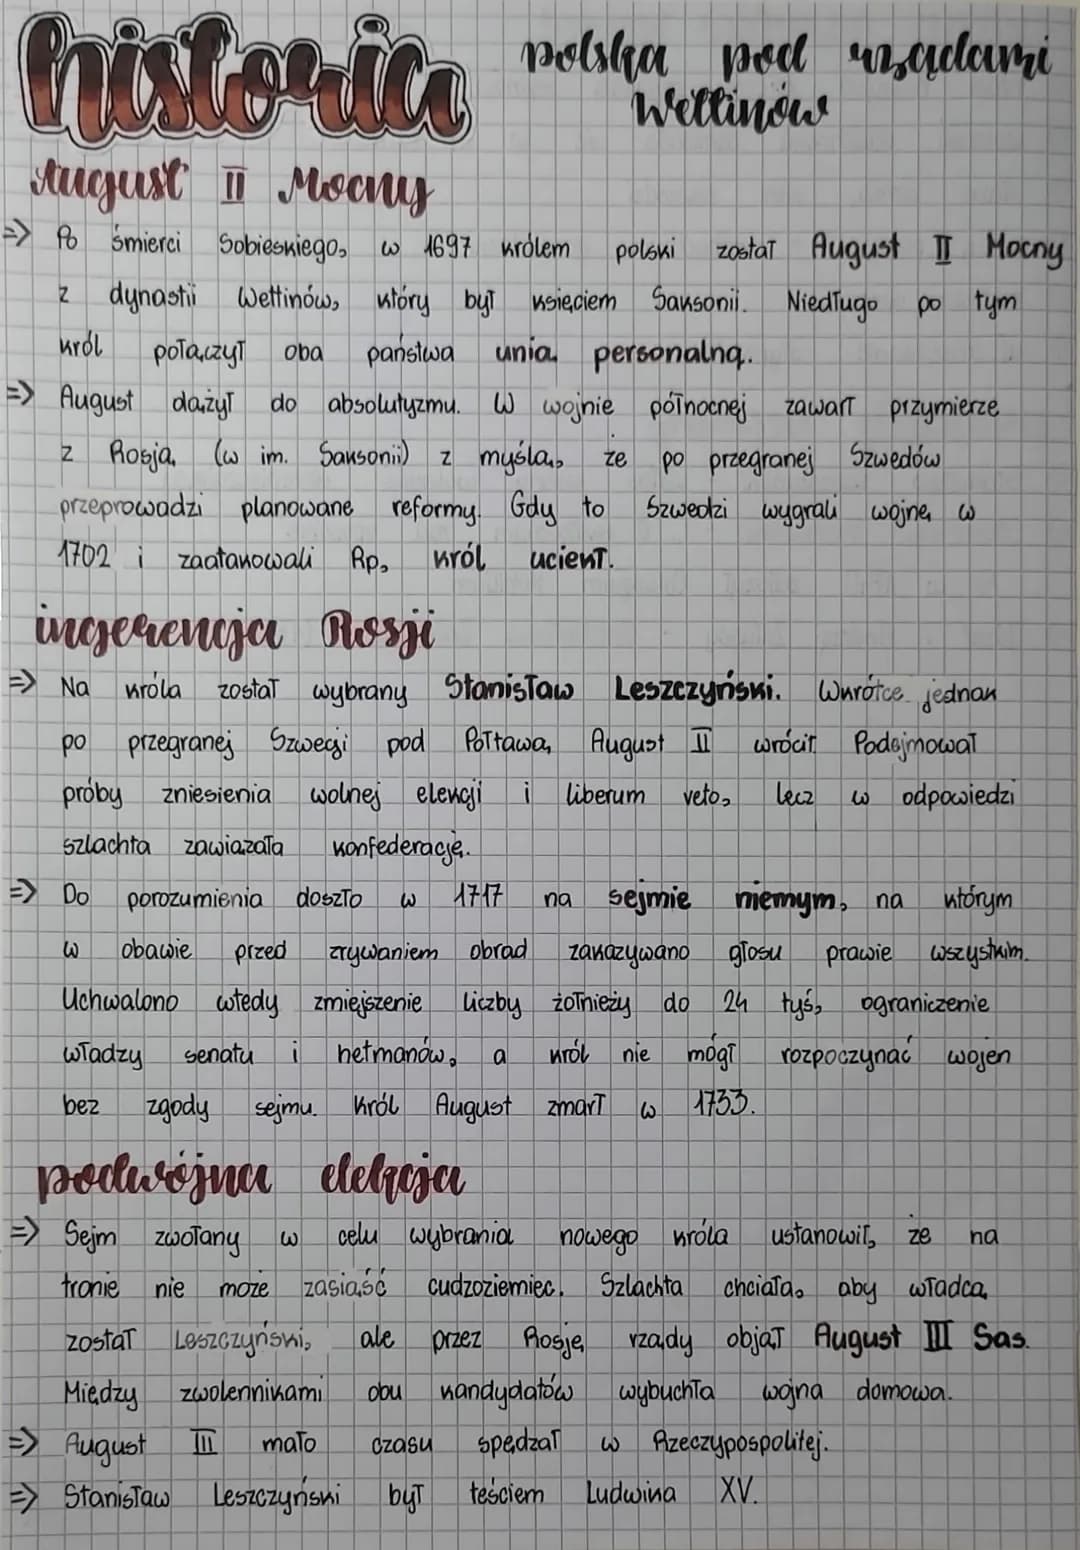 historia
polska pod rządami
Wettinów
August II Mocny
=> Po śmierci Sobieskiego, w 1697 królem polski został August II Mocny
z dynastii Wettinów, który był księciem Saksonii. Niedługo po tym
król połączył oba państwa unią personalną.
=> August dążył do absolutyzmu. W wojnie północnej zawarł przymierze
z Rosją (w im. Saksonii) z myślą, że po przegranej Szwedów
przeprowadzi planowane reformy. Gdy to Szwedzi wygrali wojnę w
1702 i zaatakowali Rp, król uciekł.
ingerencja Rosji
=> Na króla został wybrany Stanisław Leszczyński. Wkrótce jednak
po przegranej Szwecji pod Połtawą, August II wrócił. Podejmował
próby zniesienia wolnej elekcji i liberum veto, lecz w odpowiedzi
szlachta zawiązała konfederację.
=> Do porozumienia doszło w 1717 na sejmie niemym, na którym
w obawie przed zrywaniem obrad zakazywano głosu prawie wszystkim.
Uchwalono wtedy zmiejszenie liczby żołnieży do 24 tyś, ograniczenie
władzy senatu i hetmanów, a król nie mógł rozpoczynać wojen
bez zgody sejmu. Król August zmarł w 1733.
podwójna elekcja
=> Sejm zwołany w celu wybrania nowego króla ustanowił, że na
tronie nie może zasiąść cudzoziemiec. Szlachta chciała, aby władcą
został Leszczyński, ale przez Rosję rządy objął August III Sas.
Między zwolennikami obu kandydatów wybuchła wojna domowa.
=> August III mało czasu spędzał w Rzeczypospolitej.
=> Stanisław Leszczyński był teściem Ludwika XV.